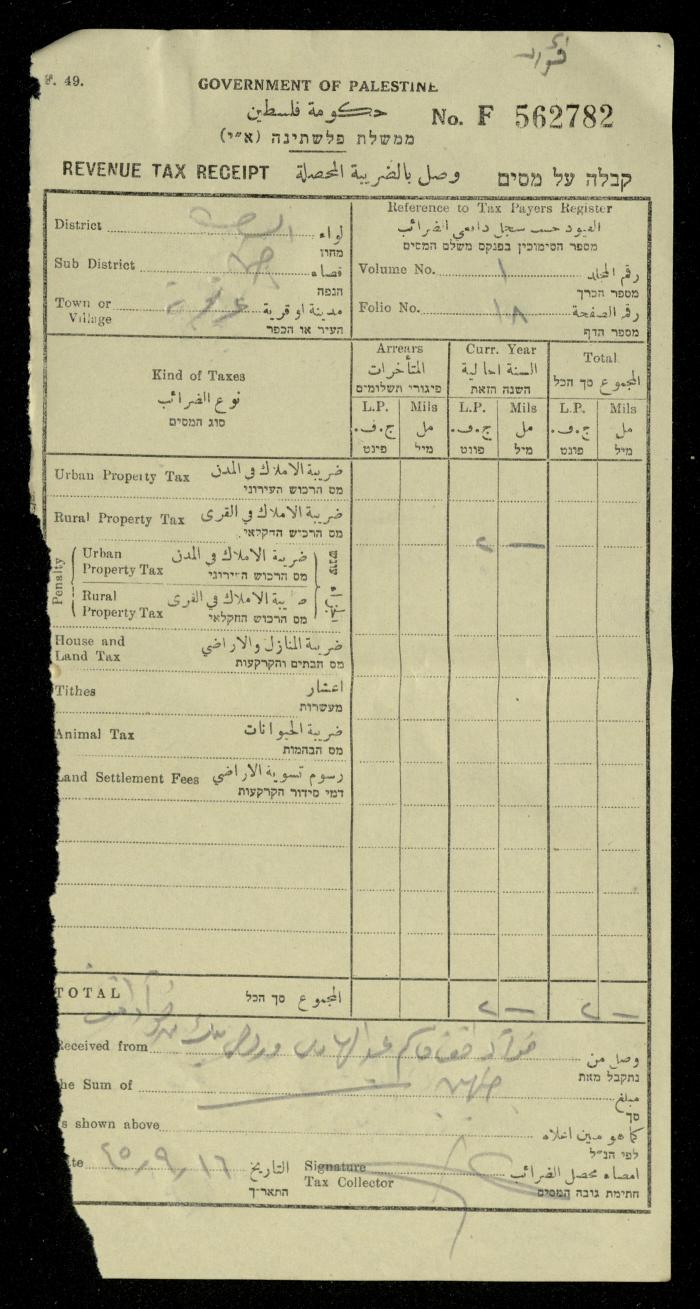 فؤاد
F. 49.
GOVERNMENT OF PALESTINE
حكومة فلسطين
No. F 562782
ממשלת פלשתינה (א״י)
REVENUE TAX RECEIPT وصل بالضريبة المحصلة קבלה על מסים
District لواء
מחוז
Sub District قضاء
הנפה
Town or Village مدينة او قرية
העיר או הכפר
Reference to Tax Payers Register
القيود حسب سجل دافعي الضرائب
מספר הסימוכין בפנקס משלם המסים
Volume No. ١ رقم المجلد
מספר הכרך
Folio No. ١٨ رقم الصفحة
מספר הדף
Kind of Taxes
نوع الضرائب
סוג המסים
Arrears
المتأخرات
פיגורי תשלומים
Curr. Year
السنة الحالية
השנה הזאת
Total
المجموع סך הכל
L.P. Mils L.P. Mils L.P. Mils
ج.ف. مل ج.ف. مل ج.ف. مل
פונט מיל פונט מיל פונט מיל
Urban Property Tax ضريبة الاملاك في المدن
מס הרכוש העירוני
Rural Property Tax ضريبة الاملاك في القرى
מס הרכוש החקלאי
٢ —
Penalty
Urban Property Tax ضريبة الاملاك في المدن
מס הרכוש העירוני
Rural Property Tax ضريبة الاملاك في القرى
מס הרכוש החקלאי
עונש
House and Land Tax ضريبة المنازل والاراضي
מס הבתים והקרקעות
Tithes اعشار
מעשרות
Animal Tax ضريبة الحيوانات
מס הבהמות
Land Settlement Fees رسوم تسوية الاراضي
דמי סידור הקרקעות
TOTAL المجموع סך הכל ٢ — ٢ —
Received from فؤاد قاسم عبد الهادي وصل من
נתקבל מאת
he Sum of مبلغ
סך
s shown above كما هو مبين اعلاه
לפי הנ״ל
te ٤٥/٩/١٦ التاريخ
התאריך
Signature Tax Collector امضاء محصل الضرائب
חתימת גובה המסים